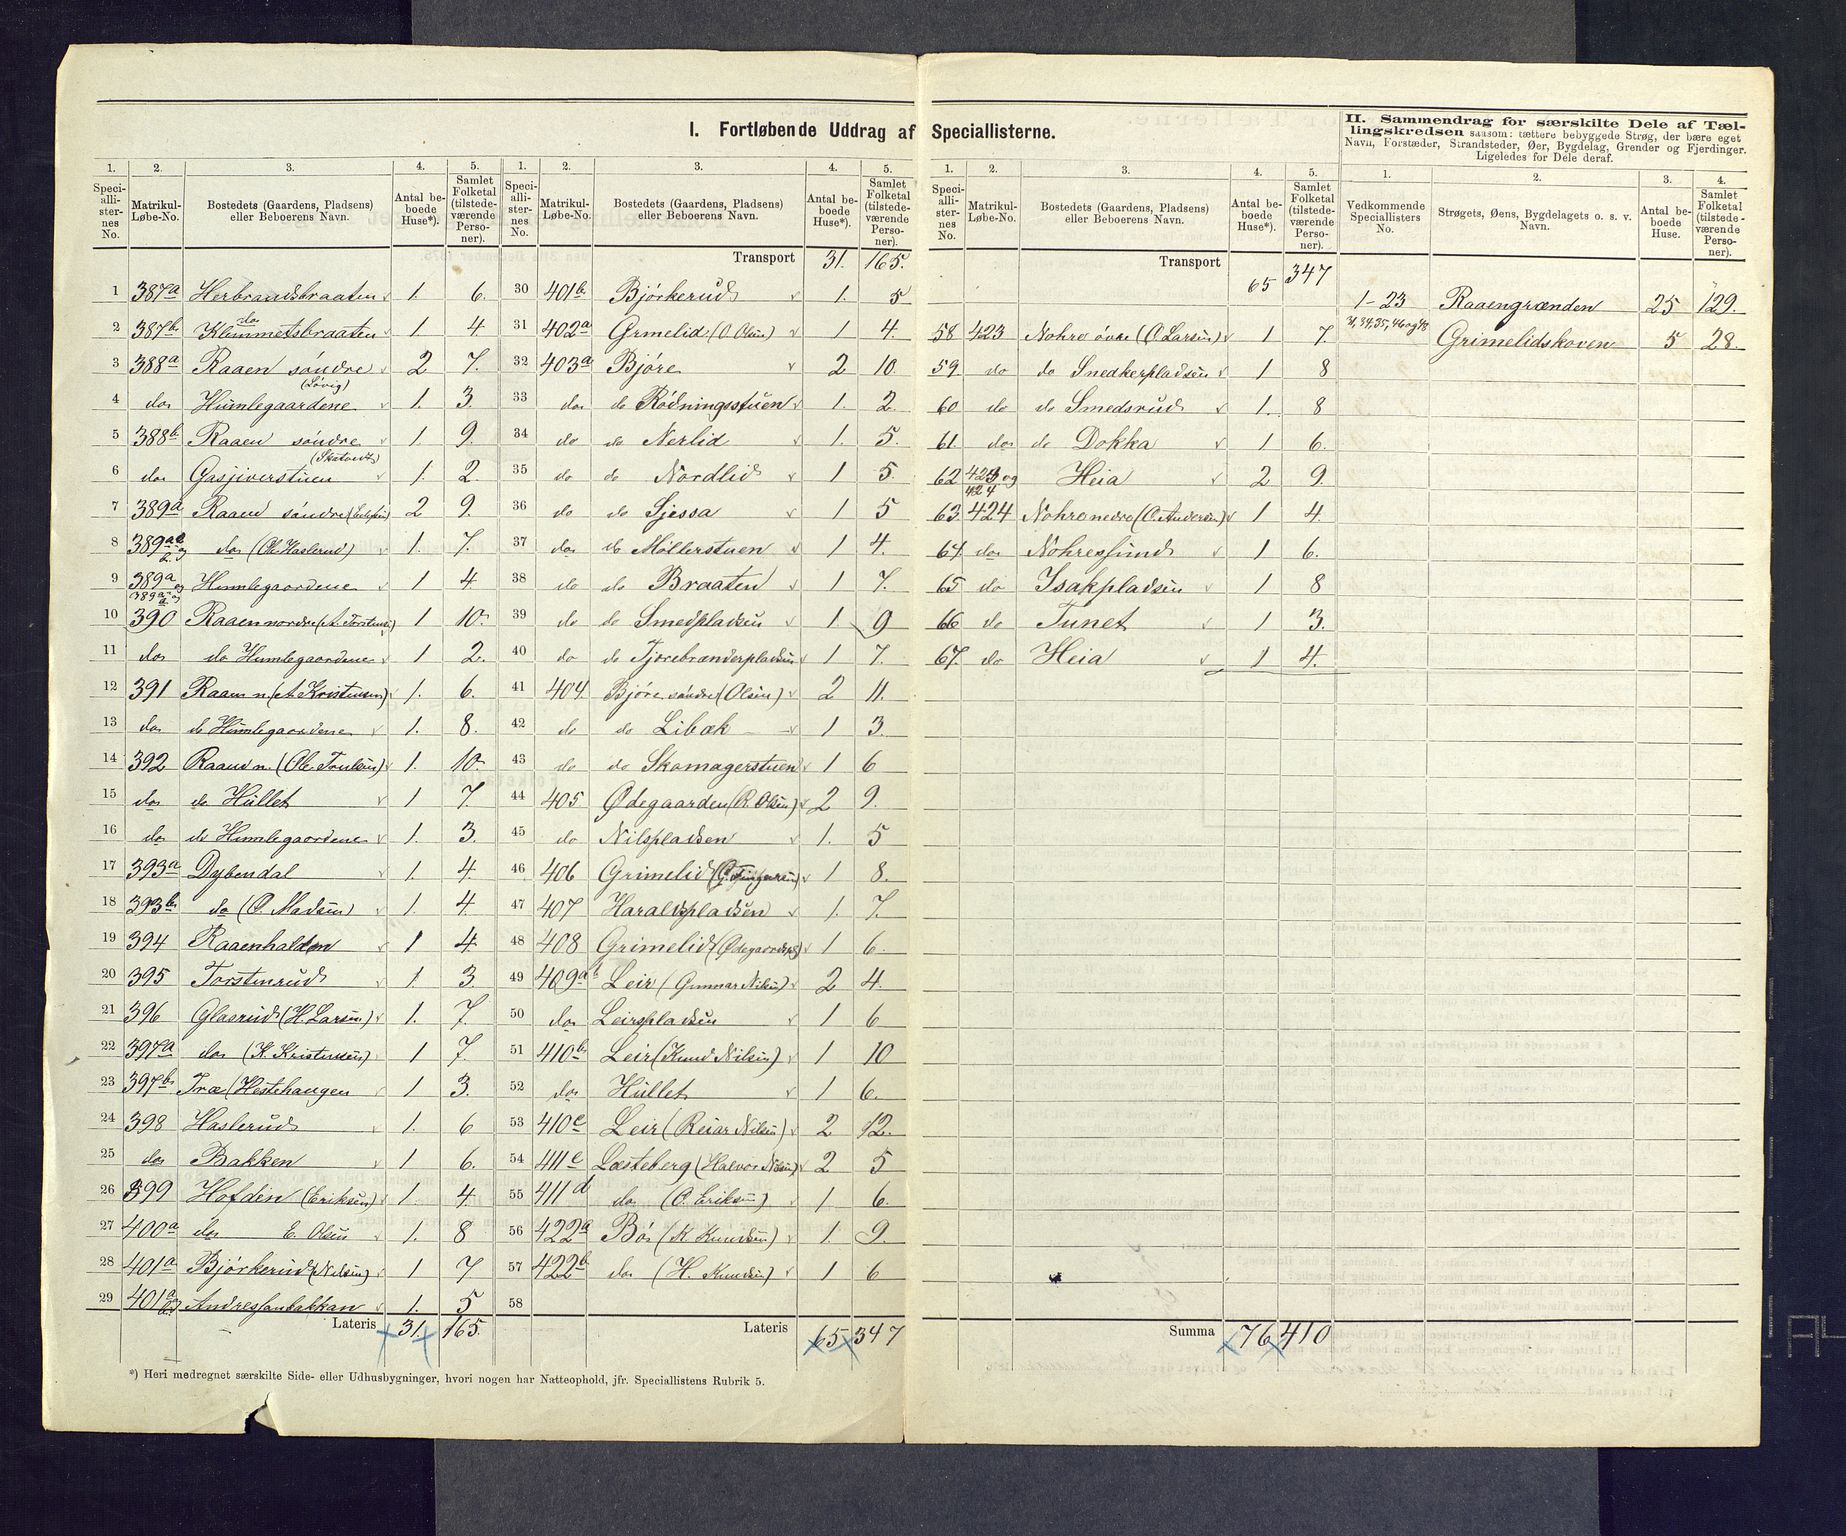 I. Fortløbende Uddrag af Speciallisterne.
1. 2. 3. 4. 5.
Speciallisternes No. Matrikul-Løbe-No. Bostedets (Gaardens, Pladsens) eller Beboerens Navn. Antal beboede Huse*). Samlet Folketal (tilstedeværende Personer).
1 387a Herbrandsbraaten 1. 6.
2 387b do Klemmetsbraaten 1 4
3 388a Raaen søndre (Løvig) 2 7.
4 do Humlegaardene 1. 3.
5 388b Raaen søndre (Skatvedt) 1. 9.
6 do Gasjiverstuen 1. 2.
7 389a Raaen søndre 2 9.
8 389a do (Ol. Haslerud) 1. 7.
9 389a og Humlegaardene 1 4
10 390 Raaen nordre (A. Torstensen) 1 10
11 do do Humlegaardene 1 2.
12 391 Raaen n. (A. Kristensen) 1. 6.
13 do do Humlegaardene 1. 8.
14 392 Raaen n. (Ole Trulsen) 1. 10
15 do do Hullet 1 7.
16 do do Humlegaardene 1. 3.
17 393a Dybendal 1. 4.
18 393b do (O. Madsen) 1. 4.
19 394 Raaenhalden 1 4
20 395 Torstenrud 1. 3.
21 396 Glasrud (H. Larsen) 1. 7.
22 397a do (K. Kristensen) 1 7.
23 397b Træ (Hestehaugen 1 3.
24 398 Haslerud 1. 6
25 do Bakken 1 6.
26 399 Hofden (Eriksen) 1. 4.
27 400a do E. Olsen 1. 8
28 401a Bjørkerud (Nilsen) 1 7
29 401a Andresbakkan 1. 5
Lateris 31. 165.
*) Heri medregnet særskilte Side- eller Udhusbygninger, hvori nogen har Natteophold, jfr. Speciallistens Rubrik 5.
1. 2. 3. 4. 5.
Speciallisternes No. Matrikul-Løbe-No. Bostedets (Gaardens, Pladsens) eller Beboerens Navn. Antal beboede Huse*). Samlet Folketal (tilstedeværende Personer).
Transport 31. 165.
30 401b Bjørkerud 1. 5
31 402a Grmelid (O. Olsen) 1 4.
32 403a Bjøre 2 10.
33 do do Rødningsstuen 1. 2.
34 do do Nerlid 1. 5.
35 do do Nordlid 1 5.
36 do do Sjessa 1 5
37 do do Møllerstuen 1 4.
38 do do Braaten 1 7.
39 do do Smedpladsen 1 9
40 do do Tjørebrænderpladsen 1 7.
41 404 Bjøre søndre (Olsen) 2 11.
42 do do Libæk 1 3.
43 do do Skomagerstuen 1 6
44 405 Ødegaarden (R. Olsen) 2 9.
45 do Nilspladsen 1. 5
46 406 Grimelid 1 8.
47 407 Haraldspladsen 1. 7.
48 408 Grimelid (Ødegaarden) 1 6.
49 409a Leir (Gunnar Nilsen) 2 4.
50 do Leirspladsen 1 6
51 410b Leir (Knud Nilsen) 1 10
52 do Hullet 1 6.
53 410c Leir (Reiar Nilsen) 2 12.
54 411c Læsteberg (Halvor Nilsen) 2 5
55 411d do (O. Eriksen) 1 6.
56 422a Bø (K. Knudsen) 1. 9.
57 422b do (H. Knudsen) 1 6
58
Lateris 65 347
1. 2. 3. 4. 5.
Speciallisternes No. Matrikul-Løbe-No. Bostedets (Gaardens, Pladsens) eller Beboerens Navn. Antal beboede Huse*). Samlet Folketal (tilstedeværende Personer).
Transport 65 347
58 423 Nohre øvre (O. Larsen) 1 7.
59. do do Snedkerpladsen 1 8
60 do do Smedsrud 1. 8
61. do do Dokka 1 6.
62 423 og 424 Heia 2 9.
63. 424 Nohre nedre (O. Andersen) 1 4.
64. do Nohresund 1 6.
65 do Isakpladsen 1 8
66 do Tunet 1 3.
67. do Heia 1 4.
Summa 76 410
II. Sammendrag for særskilte Dele af Tællingskredsen saasom: tættere bebyggede Strøg, der bære eget Navn, Forstæder, Strandsteder, Øer, Bygdelag, Grender og Fjerdinger. Ligeledes for Dele deraf.
1. 2. 3. 4.
Vedkommende Speciallisters No. Strøgets, Øens, Bygdelagets o. s. v. Navn. Antal beboede Huse. Samlet Folketal (tilstedeværende Personer).
1-23 Raaengrænden 25 129.
31, 34, 35, 46 og 48 Grimelidskoven 5 28.